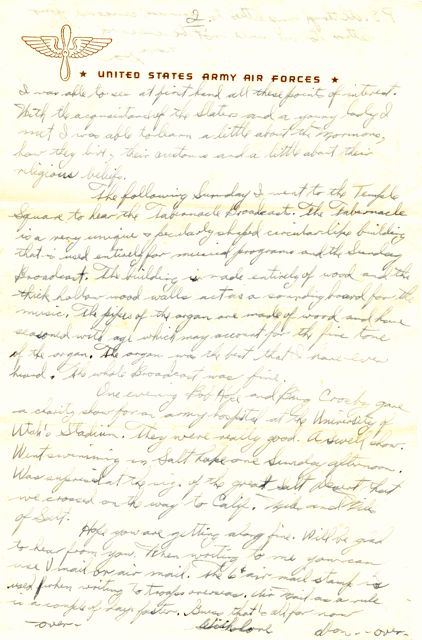 2
★ UNITED STATES ARMY AIR FORCES ★
I was able to see at first hand all these point of interest.
With the acquaintance of the Slaters and a young lady I
met I was able to learn a little about the Mormons,
how they live, their customs and a little about their
religious belief.
The following Sunday I went to the Temple
Square to hear the Tabernacle Broadcast. The Tabernacle
is a very unique & peculiarly shaped circular like building
that is used entirely for musical programs and the Sunday
Broadcast. The building is made entirely of wood and the
thick hollow wood walls act as a sounding board for the
music. The pipes of the organ are made of wood and have
seasoned with age which may account for the fine tone
of the organ. The organ was the best that I have ever
heard. The whole Broadcast was fine.
One evening Bob Hope and Bing Crosby gave
a charity show for an army hospital at the University of
Utah's Stadium. They were really good. A swell show.
Went swimming in Salt Lake one Sunday afternoon.
Was surprised at the of the great salt desert that
we crossed on the way to Calif. Miles and Miles
of Salt.
Hope you are getting along fine. Will be glad
to hear from you. When writing to me you can
use V mail or air mail. The 6¢ air mail stamp is
used when writing to troops overseas. Air mail as a rule
is a couple of days faster. Guess that's all for now
-over- With love Don -over-